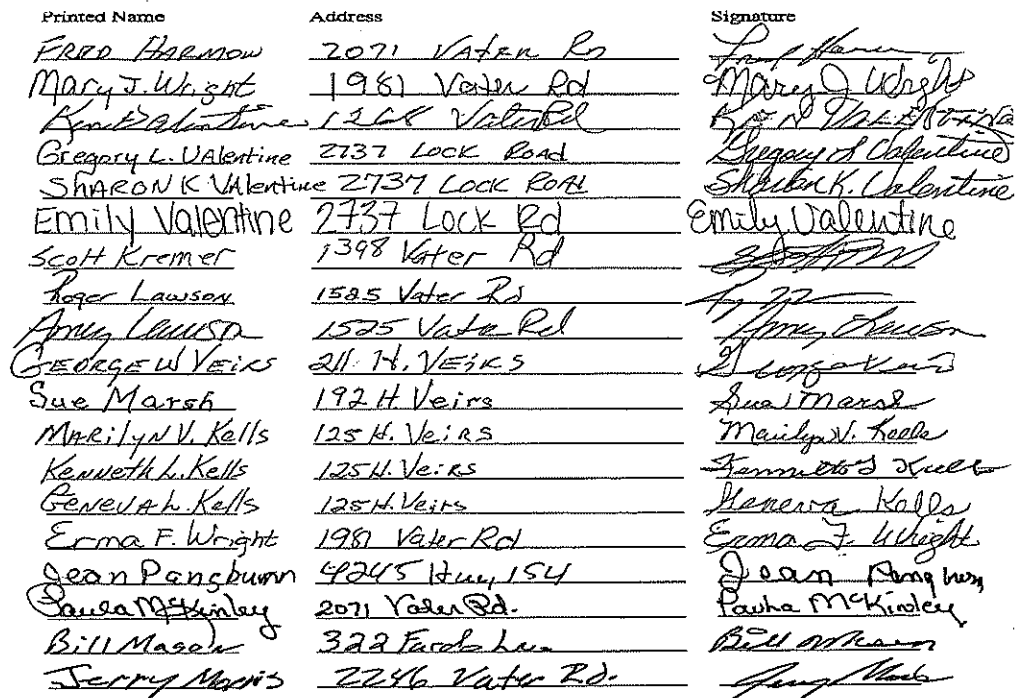 Printed Name Address Signature
FRED HARMOW 2071 VATER RD
Mary J. Wright 1981 Vater Rd Mary J Wright
Ken Valentine 1268 Vater Rd KEN VALENTINE
Gregory L. VAlentine 2737 LOCK ROAD Gregory L Valentine
SHARON K VAlentine 2737 LOCK ROAD Sharon K. Valentine
Emily Valentine 2737 Lock Rd Emily Valentine
Scott Kremer 1398 Vater Rd
Roger Lawson 1525 Vater Rd
Amy Lawson 1525 Vater Rd Amy Lawson
GEORGE W VEIRS 211 H. VEIRS George Veirs
Sue Marsh 192 H. Veirs Sue Marsh
MARilyN V. Kells 125 H. VeiRS Marilyn V. Kells
KeNNeth L. Kells 125 H. VeiRS Kenneth L Kells
GeNevA L. Kells 125 H. Veirs Geneva Kells
Erma F. Wright 1981 Vater Rd Erma F. Wright
Jean Pangburn 4245 Hwy 154 Jean Pangburn
Paula McKinley 2071 Vater Rd. Paula McKinley
Bill Mason 322 Bill Mason
Jerry Morris 2246 Vater Rd.